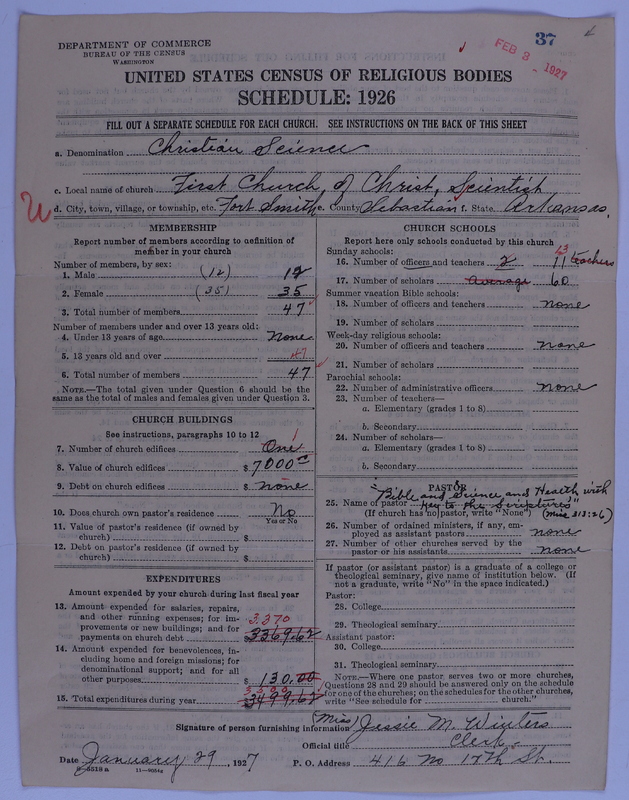 37
FEB 3 - 1927
DEPARTMENT OF COMMERCE
BUREAU OF THE CENSUS
WASHINGTON
UNITED STATES CENSUS OF RELIGIOUS BODIES
SCHEDULE: 1926
FILL OUT A SEPARATE SCHEDULE FOR EACH CHURCH. SEE INSTRUCTIONS ON THE BACK OF THIS SHEET
a. Denomination Christian Science
c. Local name of church First Church, of Christ, Scientist
d. City, town, village, or township, etc. Fort Smith e. County Sebastian f. State Arkansas.
MEMBERSHIP
Report number of members according to definition of member in your church
Number of members, by sex:
1. Male (12) 12
2. Female (35) 35
3. Total number of members 47
Number of members under and over 13 years old:
4. Under 13 years of age None
5. 13 years old and over 47
6. Total number of members 47
NOTE.—The total given under Question 6 should be
same as the total of males and females given under Question 3.
CHURCH BUILDINGS
See instructions, paragraphs 10 to 12
7. Number of church edifices One 1
8. Value of church edifices $ 7000
9. Debt on church edifices $ none
10. Does church own pastor's residence No
Yes or No
11. Value of pastor's residence (if owned by
church) $
12. Debt on pastor's residence (if owned by
church) $
EXPENDITURES
Amount expended by your church during last fiscal year
13. Amount expended for salaries, repairs,
and other running expenses; for im-
provements or new buildings; and for
payments on church debt 3,370 $ 3369.62
14. Amount expended for benevolences, in-
cluding home and foreign missions; for
denominational support; and for all
other purposes $ 130.00
15. Total expenditures during year 3500 $ 3499.62
CHURCH SCHOOLS
Report here only schools conducted by this church
Sunday schools:
16. Number of officers and teachers 2 13 11 teachers
17. Number of scholars Average 60
Summer vacation Bible schools:
18. Number of officers and teachers none
19. Number of scholars
Week-day religious schools:
20. Number of officers and teachers none
21. Number of scholars
Parochial schools:
22. Number of administrative officers none
23. Number of teachers—
a. Elementary (grades 1 to 8)
b. Secondary
24. Number of scholars—
a. Elementary (grades 1 to 8)
b. Secondary
PASTOR
"Bible and Science and Health with
25. Name of pastor Key to the Scriptures"
(If church has no pastor, write "None") (Mis 313:26)
26. Number of ordained ministers, if any, em-
ployed as assistant pastors none
27. Number of other churches served by the
pastor or his assistants none
If pastor (or assistant pastor) is a graduate of a college or
theological seminary, give name of institution below. (If
not a graduate, write "No" in the space indicated.)
Pastor:
28. College
29. Theological seminary
Assistant pastor:
30. College
31. Theological seminary
NOTE.—Where one pastor serves two or more churches,
Questions 28 and 29 should be answered only on the schedule
for one of the churches; on the schedules for the other churches,
write "See schedule for church."
Signature of person furnishing information (Miss) Jessie M. Winters
Official title Clerk.
Date January 29, 1927 P. O. Address 416 No 17th St.
11—9554